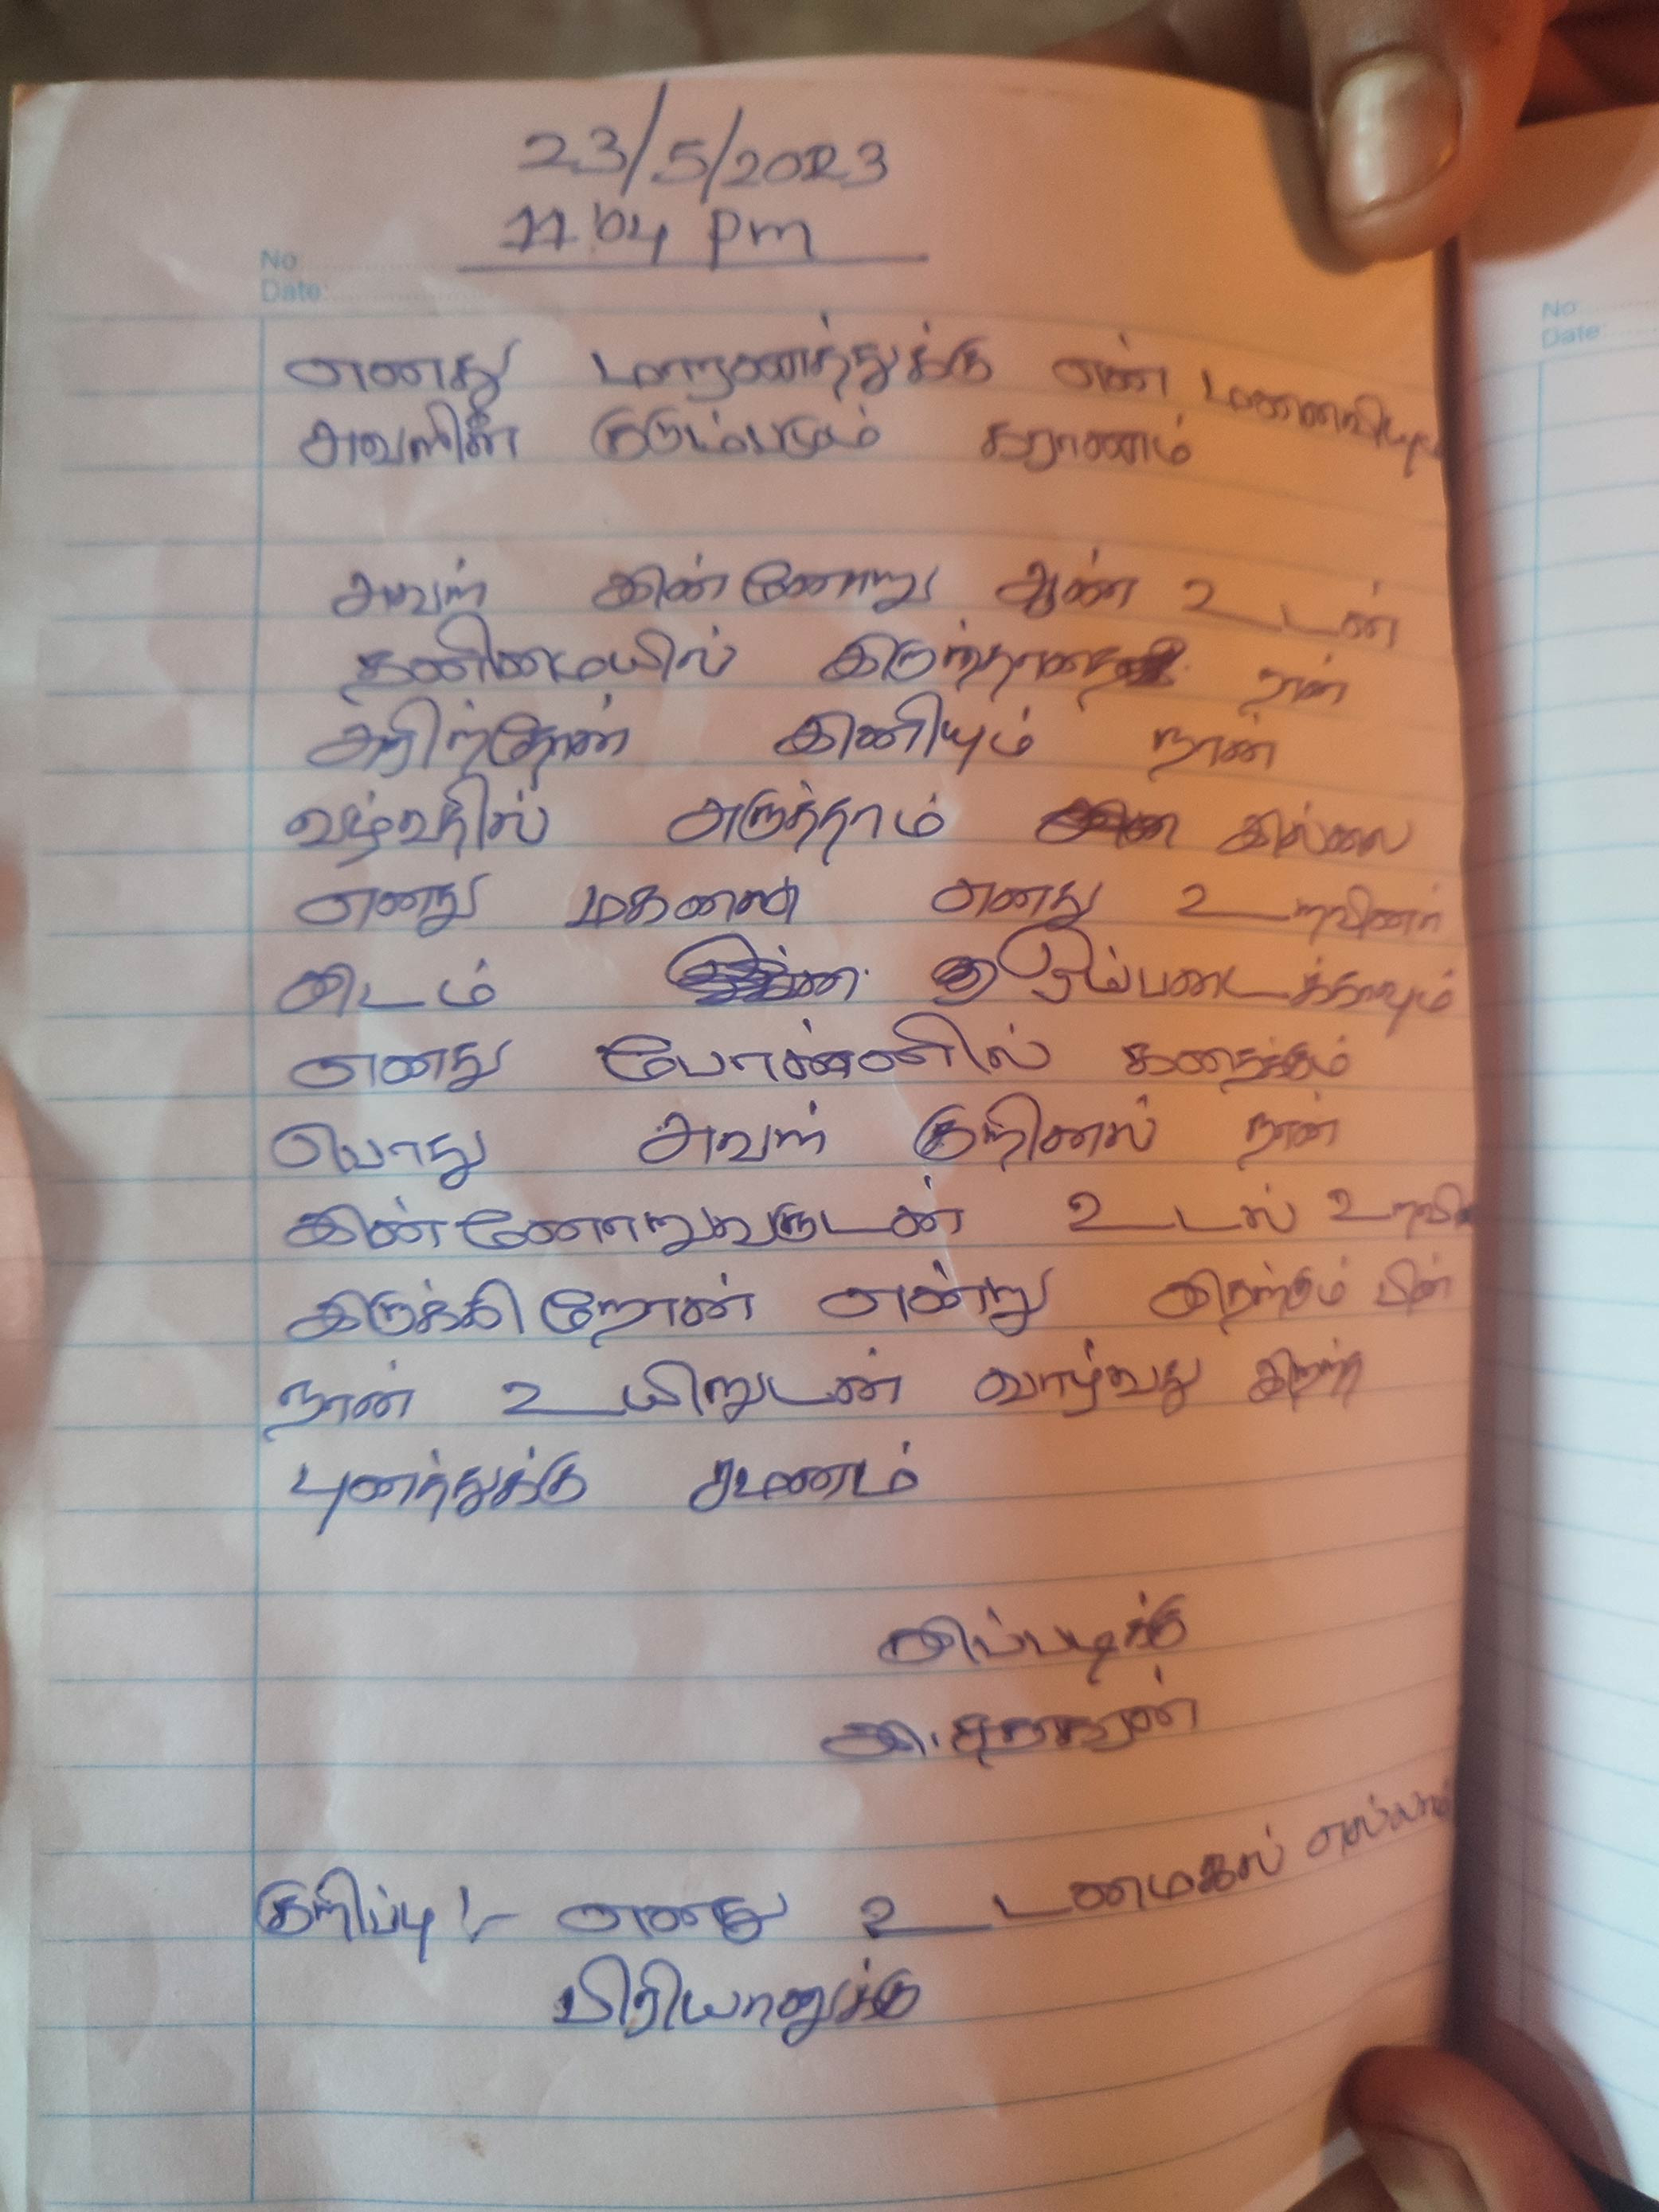 23/5/2023
11.04 pm
No:
Date:
No:
Date:
எனது மாறணத்துக்கு என் மனைவியும்
அவளின் குடும்பமும் கராணம்
அவள் இன்னோறு ஆண் உடன்
தனிமையில் இருந்தாதை நான்
அறிந்தேன் இனியும் நான்
வழ்வதில் அருத்தாம் இல்லை
எனது மகனை எனது உறவினர்
இடம் ஒப்படைக்கவும்
எனது போனில் கதைக்கும்
பொது அவள் குறினல் நான்
இன்னோறுவருடன் உடல் உறவில்
இருக்கிறோன் என்று இதற்கும் பின்
நான் உயிறுடன் வாழ்வது இறந்த
புனத்துக்கு சமனம்
இப்படிக்கு
குறிப்பு :- எனது உடமைகல் எல்லாம்
பிறியானுக்கு